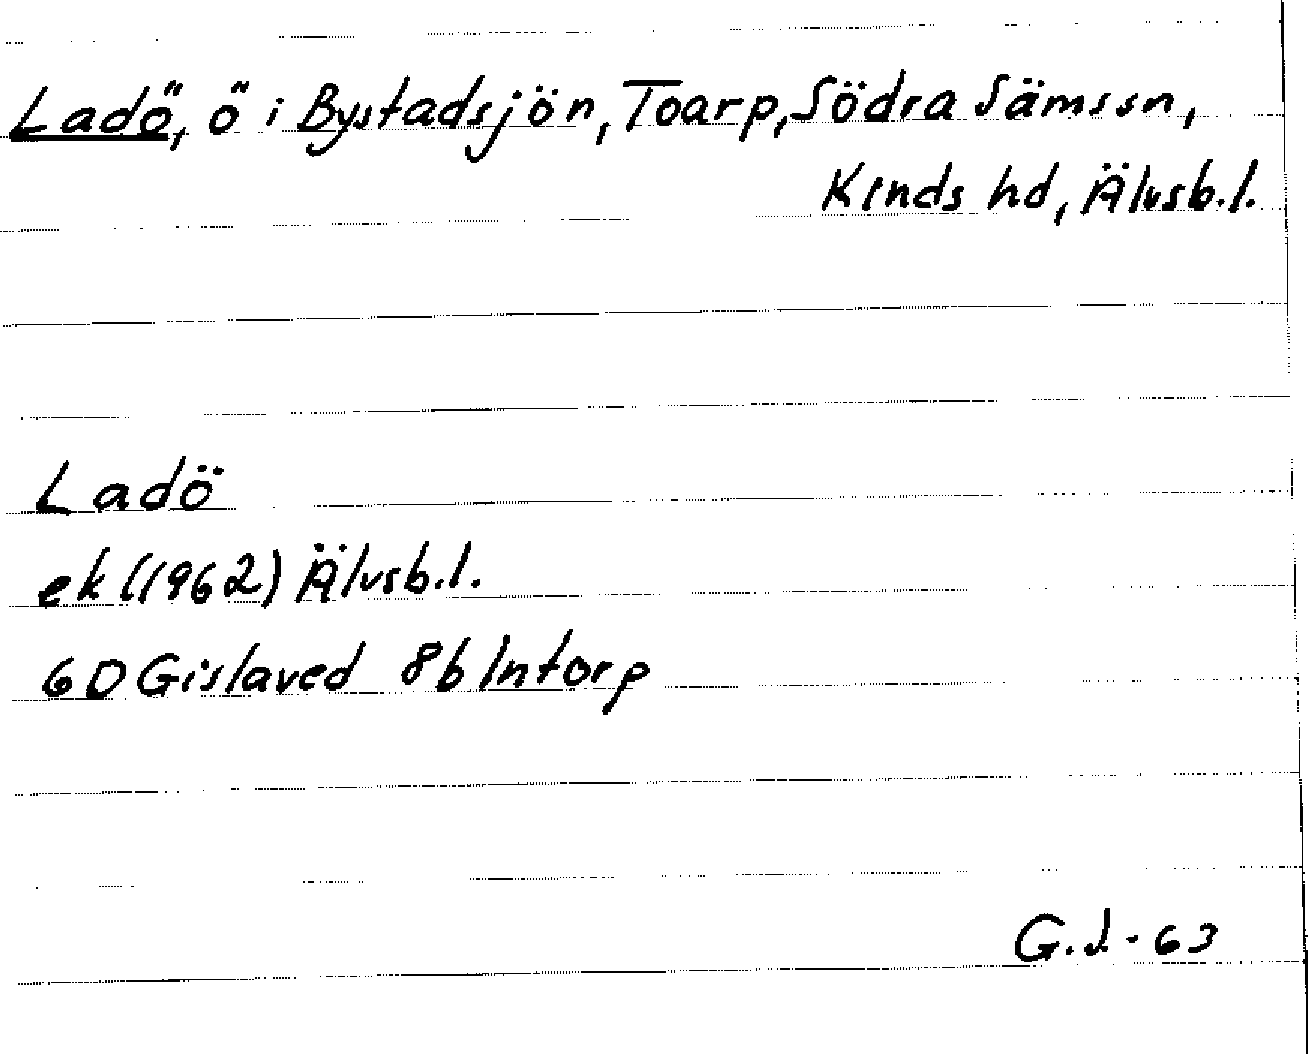 Ladö, ö i Bystadsjön, Toarp, Södra Säms sn,
Kinds hd, Älvsb.l.
Ladö
ek (1962) Älvsb.l.
6D Gislaved 8b Intorp
G.J.-63